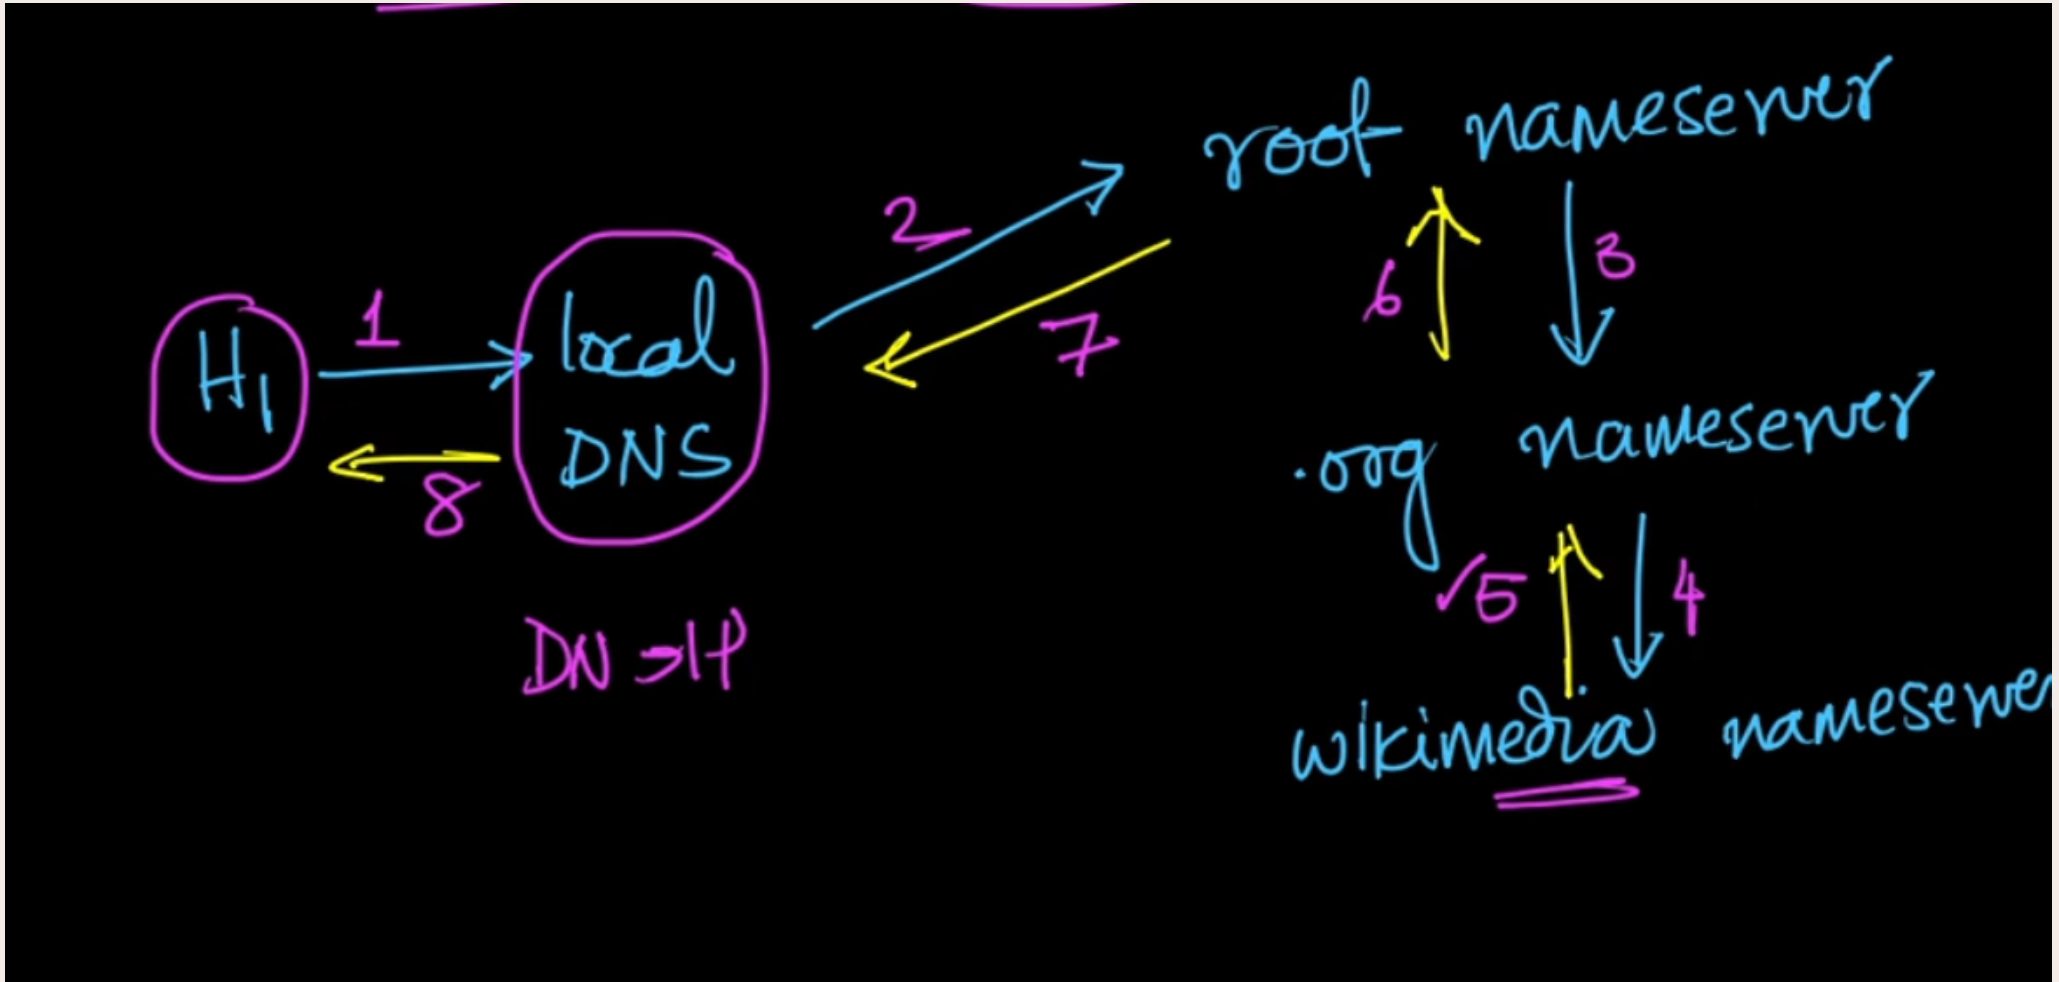 root nameserver
2
1
H1
local
DNS
7
6
3
8
.org nameserver
✓5
4
DN → IP
wikimedia nameserver